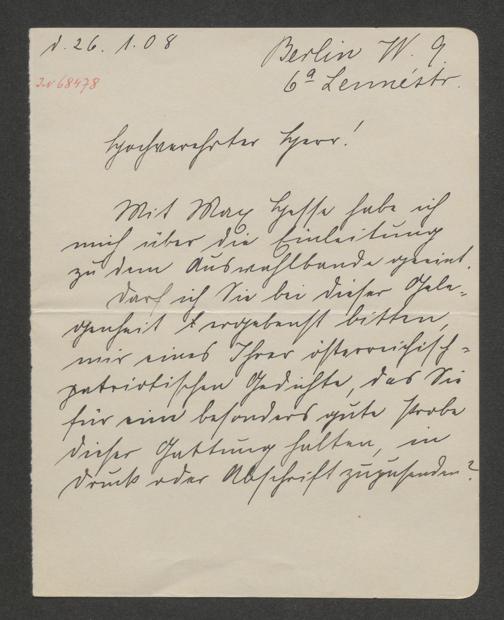 d. 26. 1. 08
Berlin W. 9
6a Lennéstr.
I.N 68478
Hochverehrter Herr!
Mit Max Hesse habe ich
mich über die Einleitung
zu dem Auswahlbande geeint.
Darf ich Sie bei dieser Gele-
genheit ergebenst bitten,
mir eines Ihrer österreichisch-
patriotischen Gedichte, das Sie
für eine besonders gute Probe
dieser Gattung halten, in
Druck oder Abschrift zuzusenden?